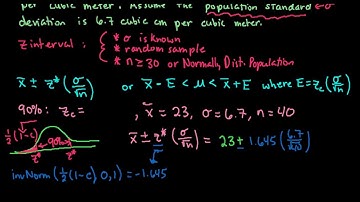 per cubic meter. Assume the population standard ← σ
deviation is 6.7 cubic cm per cubic meter.
z interval: { * σ is known
* random sample
* n ≥ 30 or Normally Dist. Population
x̄ ± z*(σ/√n) or x̄ - E < μ < x̄ + E where E = z_c(σ/√n)
90%: z_c = , x̄ = 23, σ = 6.7, n = 40
½(1-c) 90% z* z*
x̄ ± z*(σ/√n) = 23 ± 1.645(6.7/√40)
invNorm(½(1-c), 0, 1) = -1.645